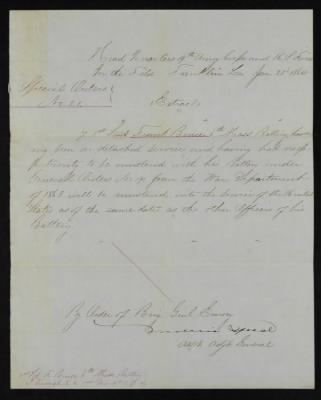 Head Quarters 19th Army Corps and U.S. Forces
In the Field Franklin La Jan 25th 1864
Special Orders
No
Extract
1st Lieut Frank Bruce 6th Mass Battery hav
ing been on detached service and having had no op
portunity to be mustered with his Battery under
General Orders No from the War Department
of 1863 will be mustered into the Service of the United
States as of the same date as the other Officers of his
Battery
By Order of Brig Genl Emory
Asst Adjt General
1st Lt F. Bruce 6th Mass Battery